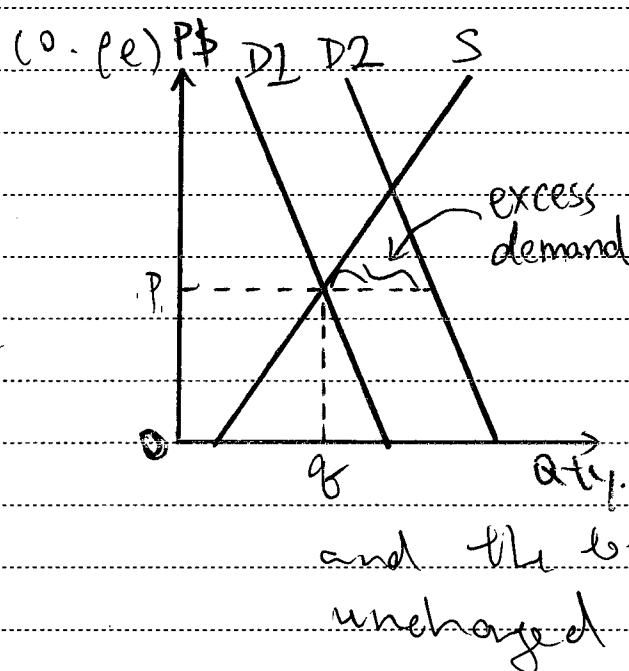 P$ D1 D2 S
excess
demand
P
0 q Qty.
and the
unchanged